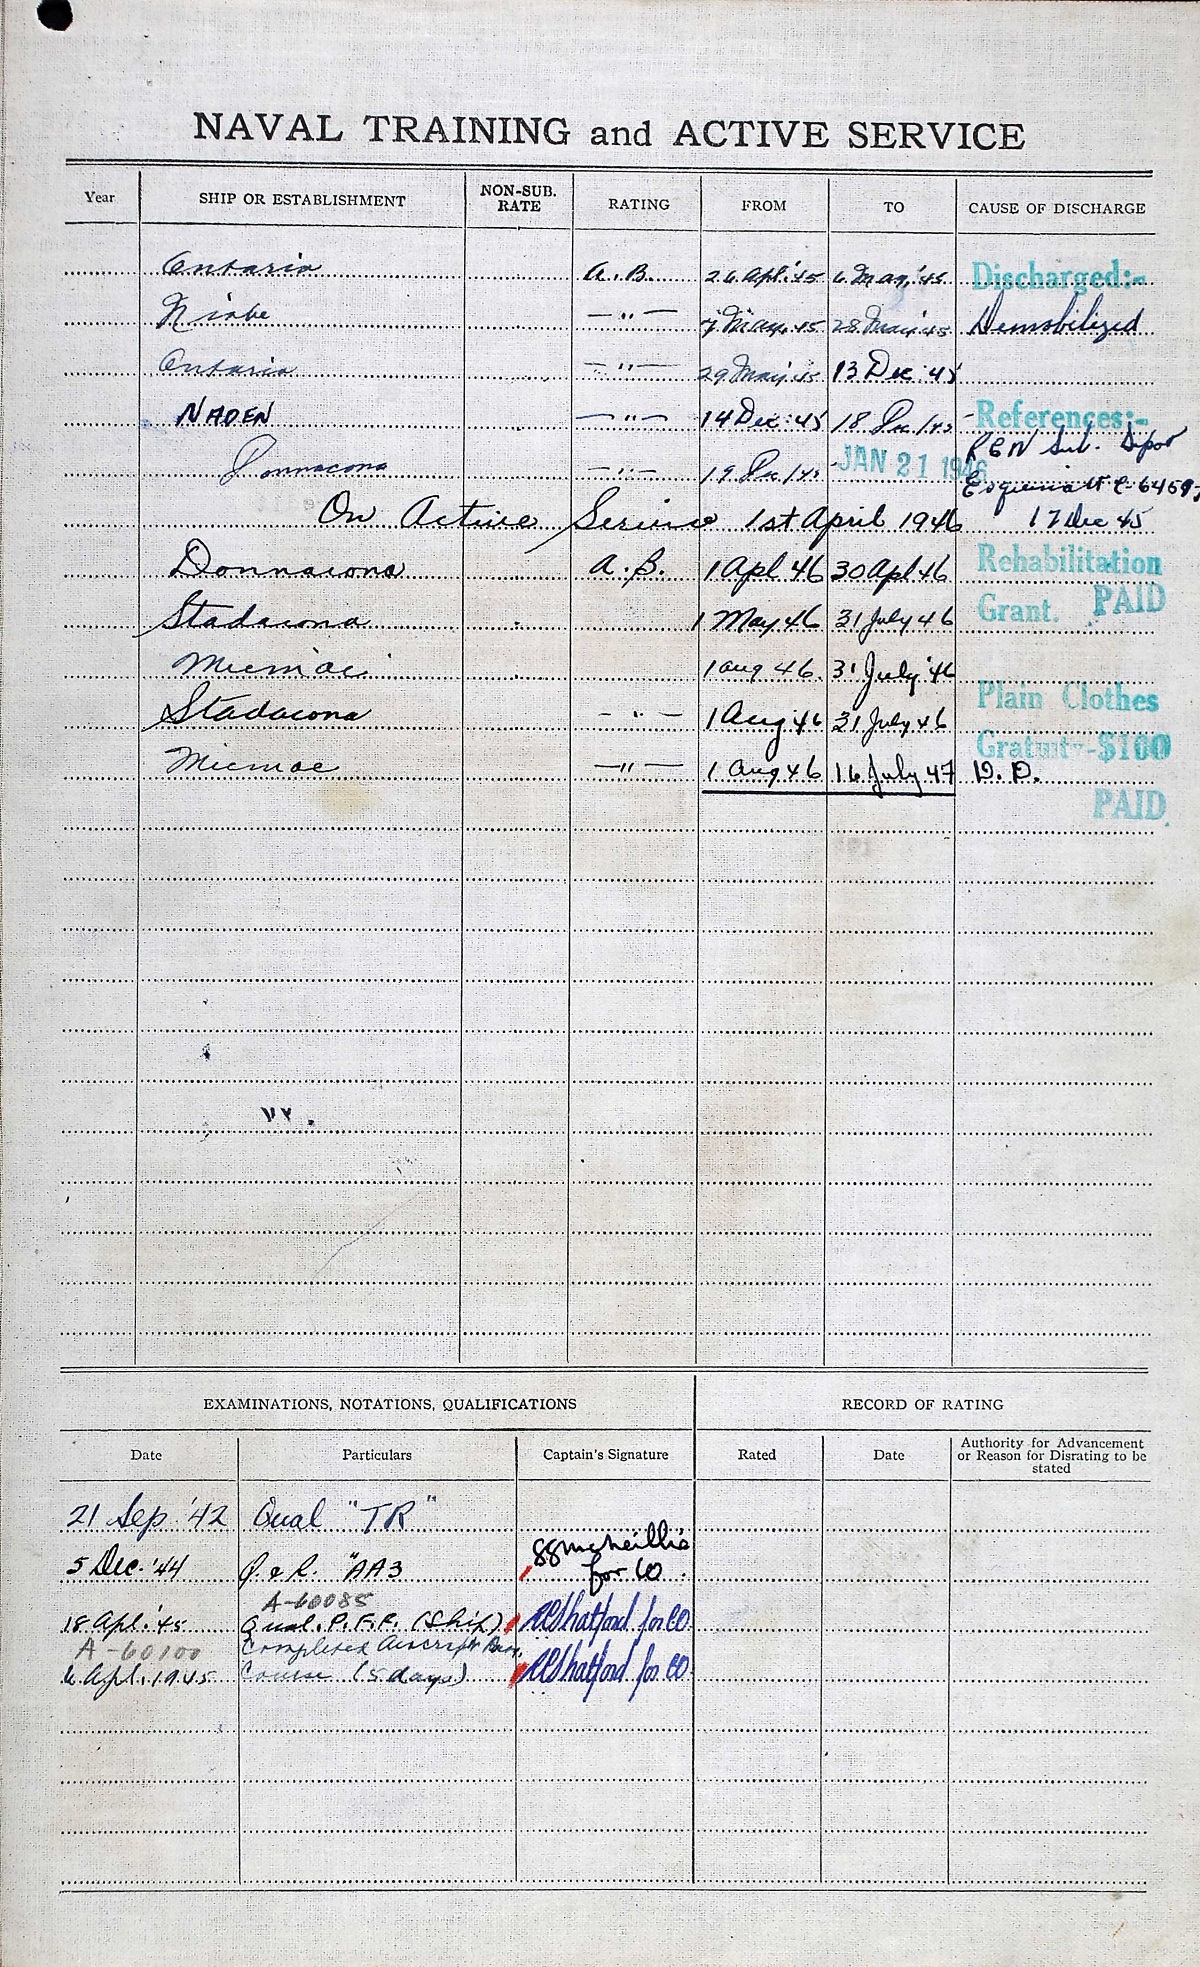 NAVAL TRAINING and ACTIVE SERVICE
Year SHIP OR ESTABLISHMENT NON-SUB. RATE RATING FROM TO CAUSE OF DISCHARGE
Ontario A.B. 26 Apl.'45 6 May.'45 Discharged:-
Niobe —"— 7 May.45 28 May'45 Demobilized
Ontario —"— 29 May'45 13 Dec '45
NADEN —"— 14 Dec:45 18 Dec/45 References:-
RCN Sub. Depot
Donnacona —"— 19 Dec/45 JAN 21 1946 Esquimalt C-6469
On Active Service 1st April 1946 17 Dec 45
Donnacona A.B. 1 Apl 46 30 Apl 46 Rehabilitation
Stadacona 1 May 46 31 July 46 Grant. PAID
Micmac 1 Aug 46. 31 July '46
Stadacona —"— 1 Aug 46 31 July 46 Plain Clothes
Micmac —"— 1 Aug 46 16 July 47 Gratuity-$100
D.D.
PAID
EXAMINATIONS, NOTATIONS, QUALIFICATIONS RECORD OF RATING
Date Particulars Captain's Signature Rated Date Authority for Advancement or Reason for Disrating to be stated
21 Sep '42 Qual "TR"
5 Dec. '44 P. & R. "AA3 for CO
A-60085
18 Apl.'45 Qual. P.F.F. (Ship) for CO
A-60100 Completed Aircraft
6 Apl. 1945 Course (5 days) for CO